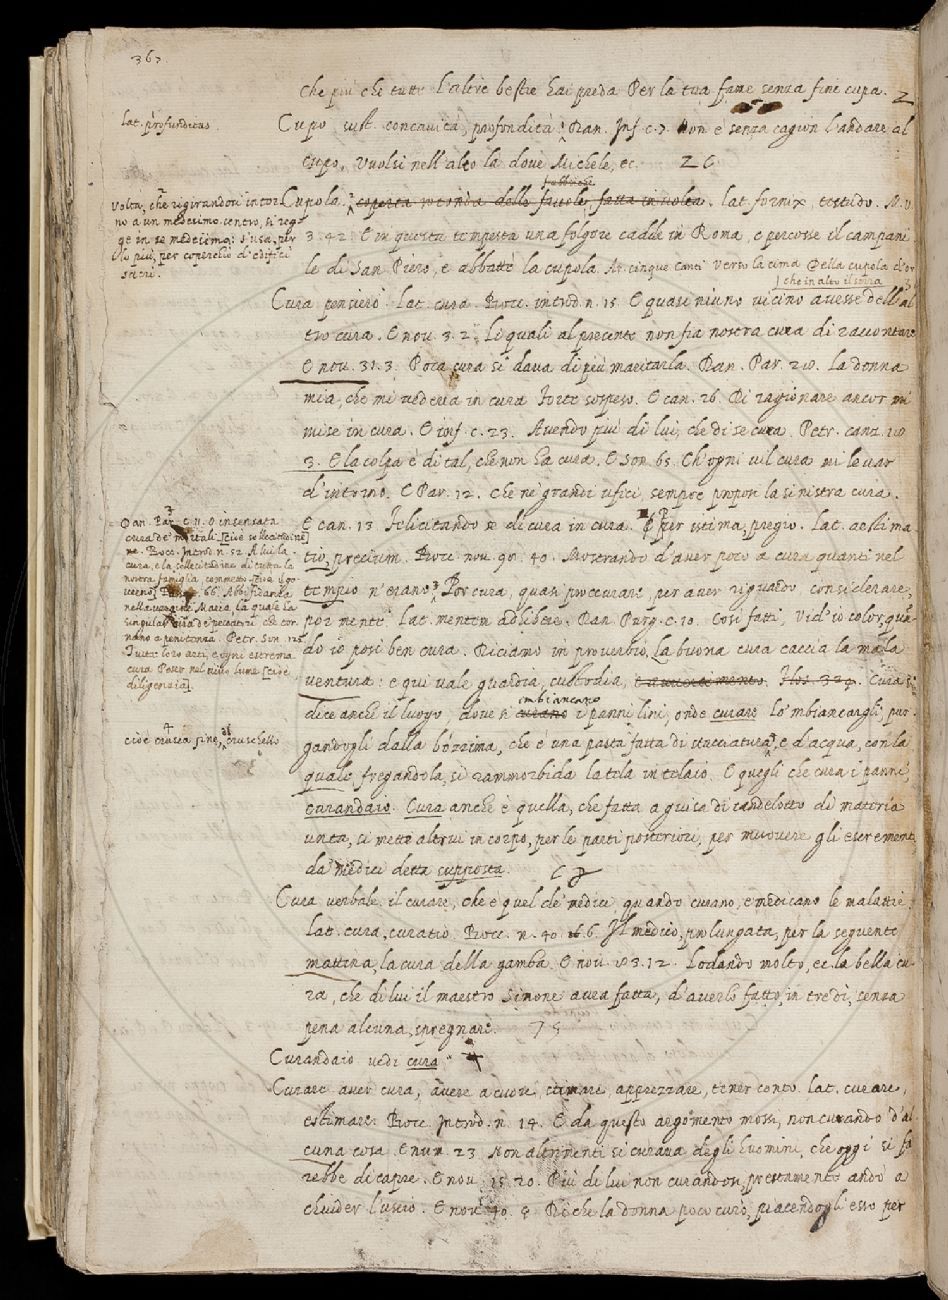 367
che più che tutte l'altre bestie hai preda Per la tua fame senza fine cupa.
lat. profunditas
Cupo sust. concavità, profondità. Dan. Inf. c. 7. Non è senza cagion l'andare al
cupo, Vuolsi nell'alto la dove Michele, ec. 26
Volta, che rigirandosi intor-
no a un medesimo centro, si reg-
ge in se medesima: s'usa, per
lo più, per coperchio d'edifici
sacri.
Cupola. coperta rotonda delle fatta in volta. lat. fornix, testudo. M. V.
3. 42. E in questa tempesta una folgore cadde in Roma, e percosse il campani
le di San Piero, e abbattè la cupola. verso la cima Della cupola
che in alto il serra
Cura pensiero. lat. cura. Bocc. introd. n. 15. E quasi niuno vicino avesse dell'al
tro cura. E nov. 3. 2. Li quali al presente non fia nostra cura di raccontare
E nov. 31. 3. Poca cura si dava di più maritarla. Dan. Par. 28. La donna
mia, che mi vedeva in cura Forte sospeso. E can. 26. Di ragionare ancor mi
mise in cura. E Inf. c. 23. Avendo più di lui, che di se cura. Petr. canz.
3. E la colpa è di tal, che non ha cura. E Son. 65. Ch'ogni vil cura mi levar
d'intorno. E Par. 12. Che ne' grandi ufici, sempre propon la sinistra cura.
E can. 13 Felicitando se di cura in cura. per istima, pregio. Lat. aestima
tio, precium. Bocc. nov. 90. 40. Mostrando d'aver poco a cura quanti nel
tempio n'erano. Por cura, quasi proccurare, per aver riguardo considerare,
por mente. Lat. mentem adhibere. Dan. Purg. c. 10. Così fatti, Vid'io color, qua-
do io posi ben cura. Diciamo in proverbio, La buona cura caccia la mala
ventura: e qui vale guardia, custodia, Cura si
Dan. Par. c. 11. O insensata
cura de' mortali [cioè sollecitudine]
Bocc. Introd. n. 52. A lui la
cura, e la sollecitudine di tutta la
nostra famiglia commetto [cioè il go-
verno] 66. Abbi fidanza
nella vergine Maria, la quale ha
singular cura de' peccatori che tor-
nano a penitenza. Petr. Son.
Tutti loro arti, e ogni estrema
cura Poser nel vivo lume [cioè
diligenzia].
dice anche il luogo, dove s' curano imbiancano i panni lini, onde curare lo 'mbiancargli, pur-
cioè crusca fine, o cruschello
gandogli dalla bózzima, che è una pasta fatta di stacciatura, e d'acqua, con la
quale, fregandola, si rammorbida la tela in telaio. E quegli che cura i panni,
curandaio. Cura anche è quella, che fatta a guisa di candelotto di materia
unta, si mette altrui in corpo, per le parti posteriori, per muovere gli escrementi
da' medici detta supposta.
Cura verbale. il curare, che è quel de' medici quando curano, e medicano le malattie,
Lat. cura, curatio. Bocc. n. 40. 6. Il medico, prolungata, per la seguente
mattina, la cura della gamba. E nov. 83. 12. Lodando molto, ec. la bella cu-
ra, che di lui il maestro Simone avea fatta, d'averlo fatto, in tre dì, senza
pena alcuna, spregnare. 75
Curandaio vedi cura
Curare aver cura, avere a cuore, stimare, apprezzare, tener conto. lat. curare,
estimare. Bocc. Introd. n. 14. E da questo argomento mossi, non curando d'al
cuna cosa. E num. 23. Non altrimenti si curava degli huomini, che oggi si fa
rebbe di capre. E nov. 15. 20. Più di lui non curandosi, prestamente andò a
chiuder l'uscio. E nov. 40. Di che la donna poco curò, piacendogli esso per